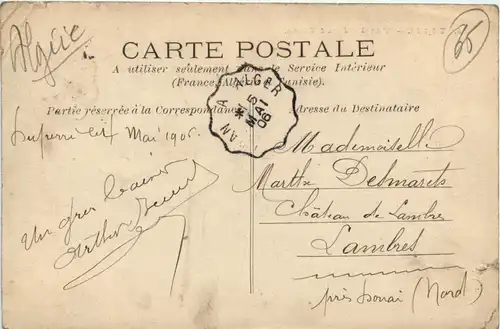 Algérie
35
CARTE POSTALE
A utiliser seulement dans le Service Intérieur
(France, Algérie et Tunisie).
Partie réservée à la Correspondance
Adresse du Destinataire
ALGER
5
MAI
06
Duperré le 4 Mai 1906.
Un gros baiser
Arthur
Mademoiselle
Marthe Delmarets
Château de Lambres
Lambres
près Douai (Nord)